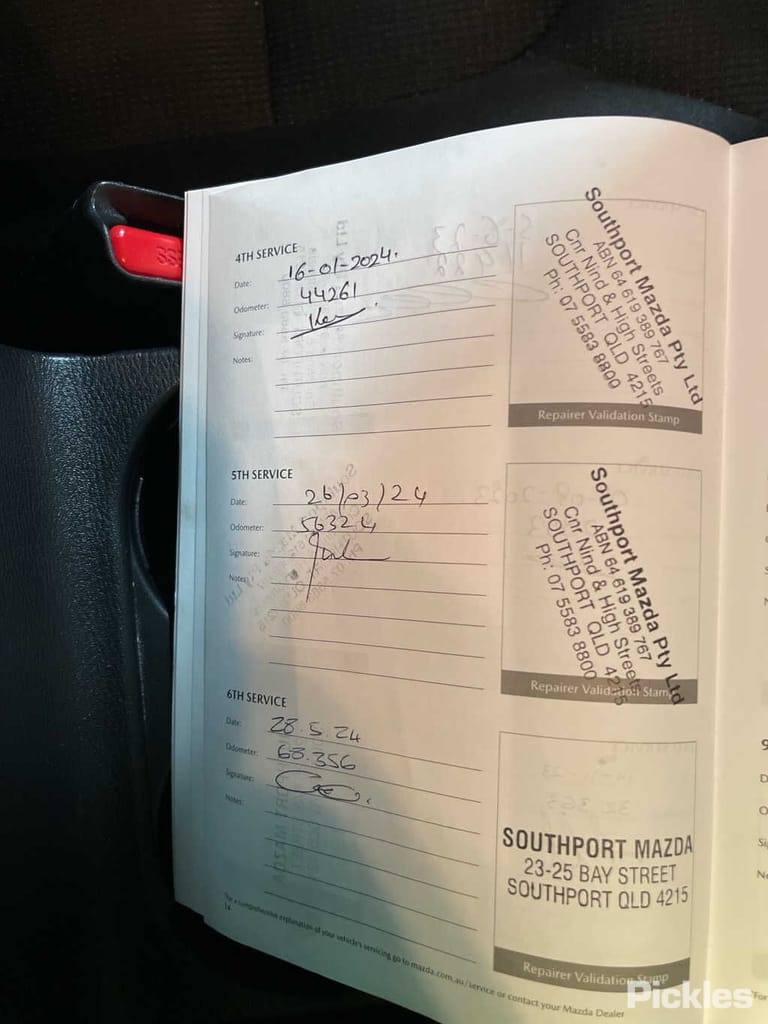 4TH SERVICE
Date: 16-01-2024.
Odometer: 44261
Signature:
Notes:
Southport Mazda Pty Ltd
ABN 64 619 389 767
Cnr Nind & High Streets
SOUTHPORT QLD 4215
Ph: 07 5583 8800
Repairer Validation Stamp
5TH SERVICE
Date: 26/03/24
Odometer: 56324
Signature:
Notes:
Southport Mazda Pty Ltd
ABN 64 619 389 767
Cnr Nind & High Streets
SOUTHPORT QLD 4215
Ph: 07 5583 8800
Repairer Validation Stamp
6TH SERVICE
Date: 28.5.24
Odometer: 68.356
Signature:
Notes:
SOUTHPORT MAZDA
23-25 BAY STREET
SOUTHPORT QLD 4215
Repairer Validation Stamp
For a comprehensive explanation of your vehicle's servicing go to mazda.com.au/service or contact your Mazda Dealer
14
Pickles